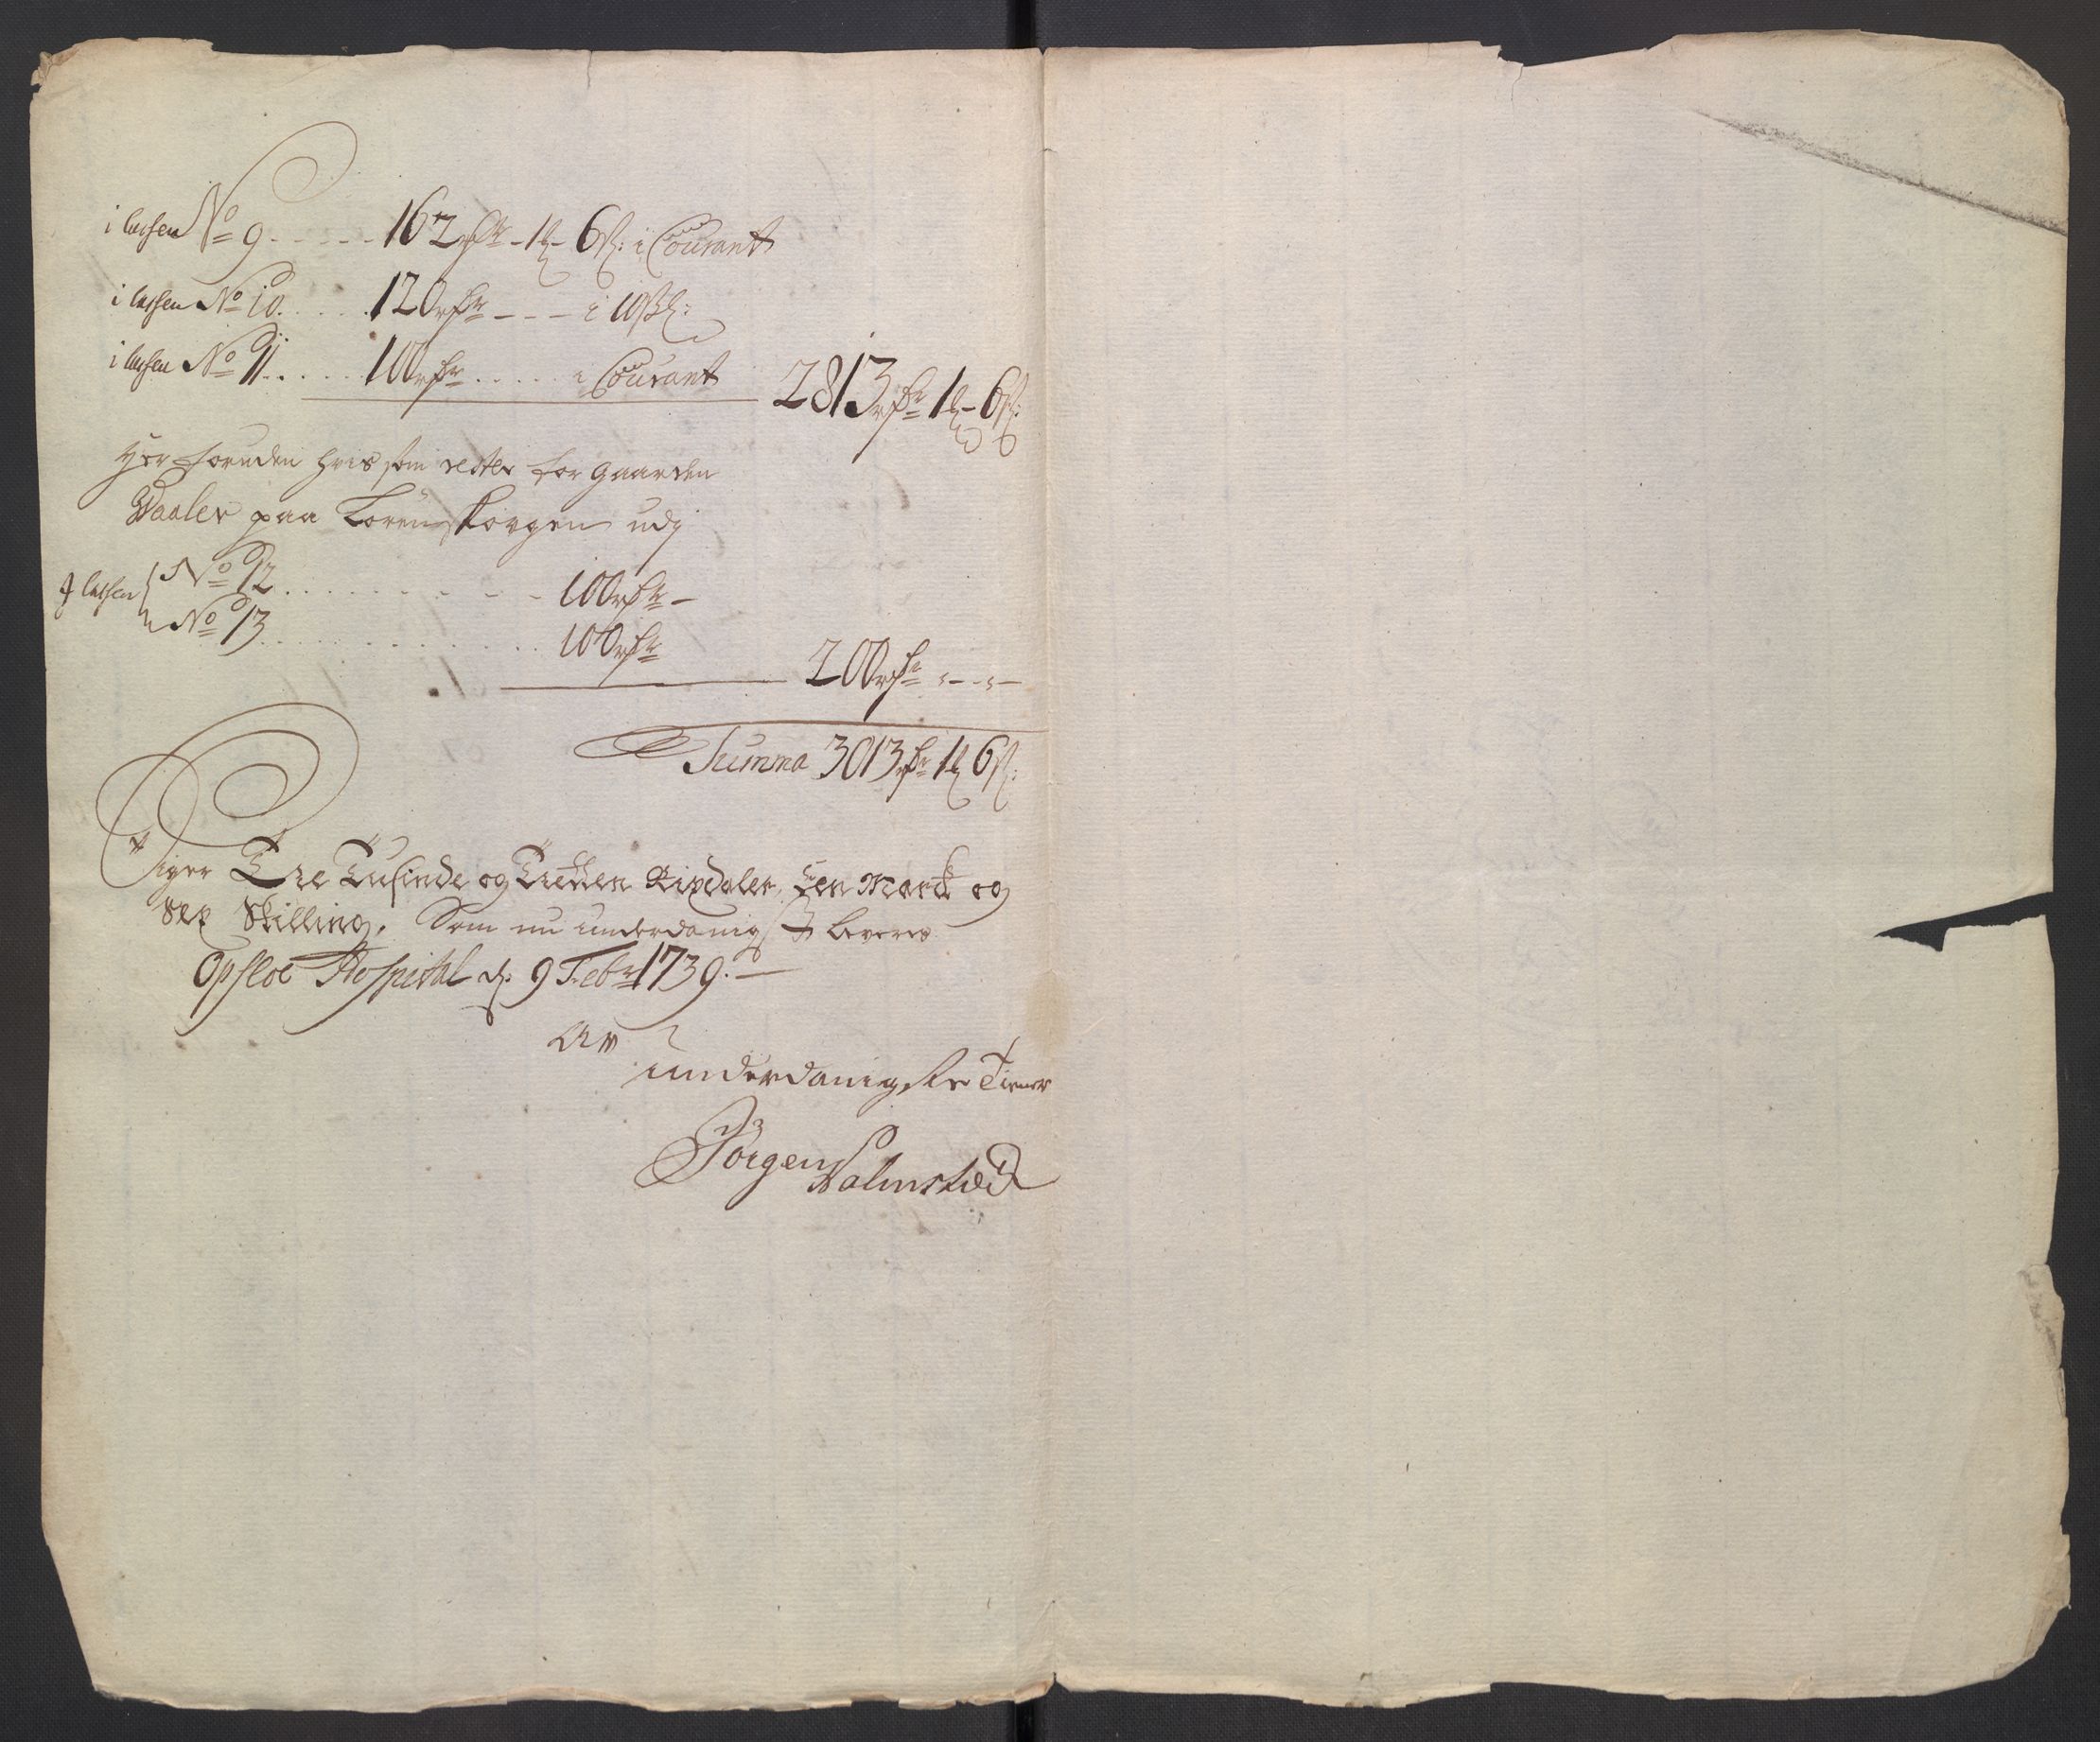 i lachen No 9 - - - - - 162 rdr - 1 m - 6 s: i Courant
i lachen No 10. . . . . 120 rdr - - - i 10 sk:
i lachen No 11. . . . . 100 rdr . . . . . i Courant 2813 rdr 1 m - 6 s:
Her foruden hvis som rester for gaarden
Waaler paa Lorenskovgen udj
J lachen No 12 . . . . . . . - - - 100 rdr -
No 13 . . . . . . . . . . . 100 rdr
200 rdr - - -
Summa 3013 rdr 1 m 6 s:
Siger Tre Tusinde og Tretten Rixdaler, Een Marck og
Sex Skilling, Som nu underdanigst leveres
Opsloe Hospital d: 9 Febr 1739. —
Av
underdanigste Tiener
Jörgen Halmstæd